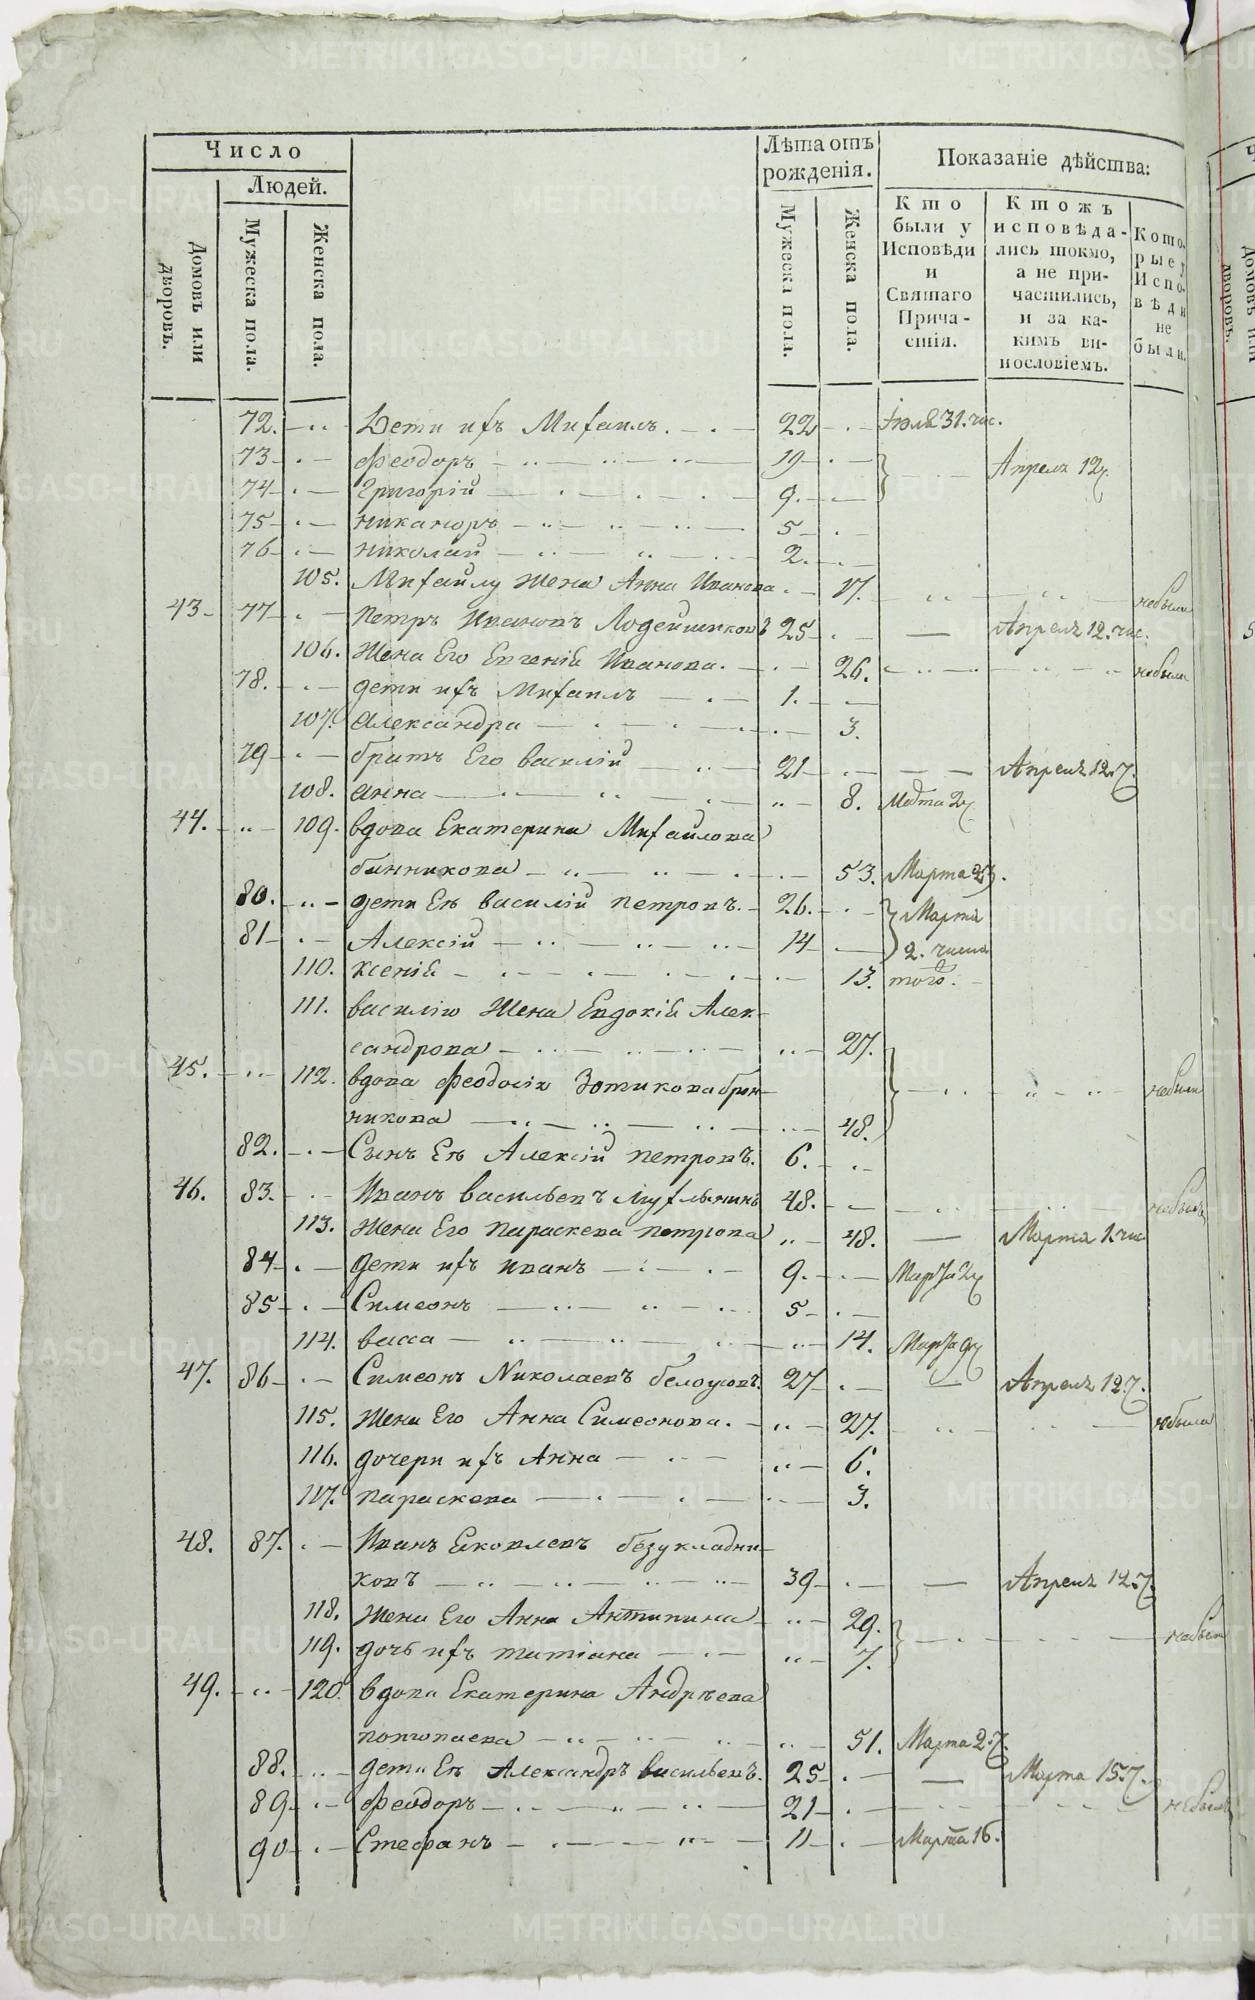 METRIKI.GASO-URAL.RU
Число
Людей.
Домовъ или дворовъ.
Мужеска пола.
Женска пола.
Лѣта отъ рожденія.
Мужеска пола.
Женска пола.
Показаніе дѣйства:
Кто были у Исповѣди и Святаго Причастія.
Ктожъ исповѣдались токмо, а не причастились, и за какимъ винословіемъ.
Которые у Исповѣди не были.
72. Дети ихъ Михаилъ. 22 Іюля 31. чис.
73 Феодоръ 19 Апреля 12
74 Григорій 9.
75 Никаноръ 5
76 Николай 2.
105. Михаилу Жена Анна Иванова 17. небыли
43 77 Петръ Ивановъ Лодейщиковъ 25 Апреля 12. чис.
106. Жена Его Евгенія Иванова. 26. небыли
78. дети ихъ Михаилъ 1.
107. Александра 3.
79 братъ Его Василій 21 Апреля 12.
108. Анна 8. Марта 2
44. 109. вдова Екатерина Михайлова
бинникова 53. Марта 23.
80. дети Ея Василій Петровъ. 26. Марта
81 Алексій 14 2. числа
110. Ксенія 13. того.
111. Василію Жена Евдокія Алек-
сандрова 27.
45. 112. вдова Феодосія Зотикова брон-
никова 48. небыли
82. Сынъ Ея Алексій Петровъ. 6.
46. 83. Иванъ Васильевъ 48. небылъ
113. Жена Его Параскева Петрова 48. Марта 1. чис
84 дети ихъ Иванъ 9. Марта 2
85 Симеонъ 5
114. васса 14. Марта 9
47. 86 Симеонъ Николаевъ белоусовъ. 27 Апреля 12.
115. Жена Его Анна Симеонова. 27. небыла
116. дочери ихъ Анна 6.
117. параскева 3.
48. 87. Иванъ Яковлевъ безукладни-
ковъ 39 Апреля 12.
118. Жена Его Анна Антипина 29. небыли
119. дочь ихъ татіана 7.
49. 120. вдова Екатерина Андреева
51. Марта 2.
88. дети Ея Александръ Васильевъ. 25 Марта 15.
89 Феодоръ 21 небылъ
90 Стефанъ 11 Марта 16.